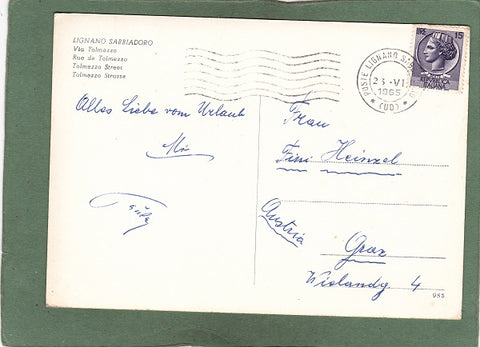 LIGNANO SABBIADORO
Via Tolmezzo
Rue de Tolmezzo
Tolmezzo Street
Tolmezzo Strasse
Alles Liebe vom Urlaub
POSTE LIGNANO
23-VI
1965
(UD)
LIRE 15
Frau
Fini Heinzel
Austria
Graz
Wielandg. 4
985